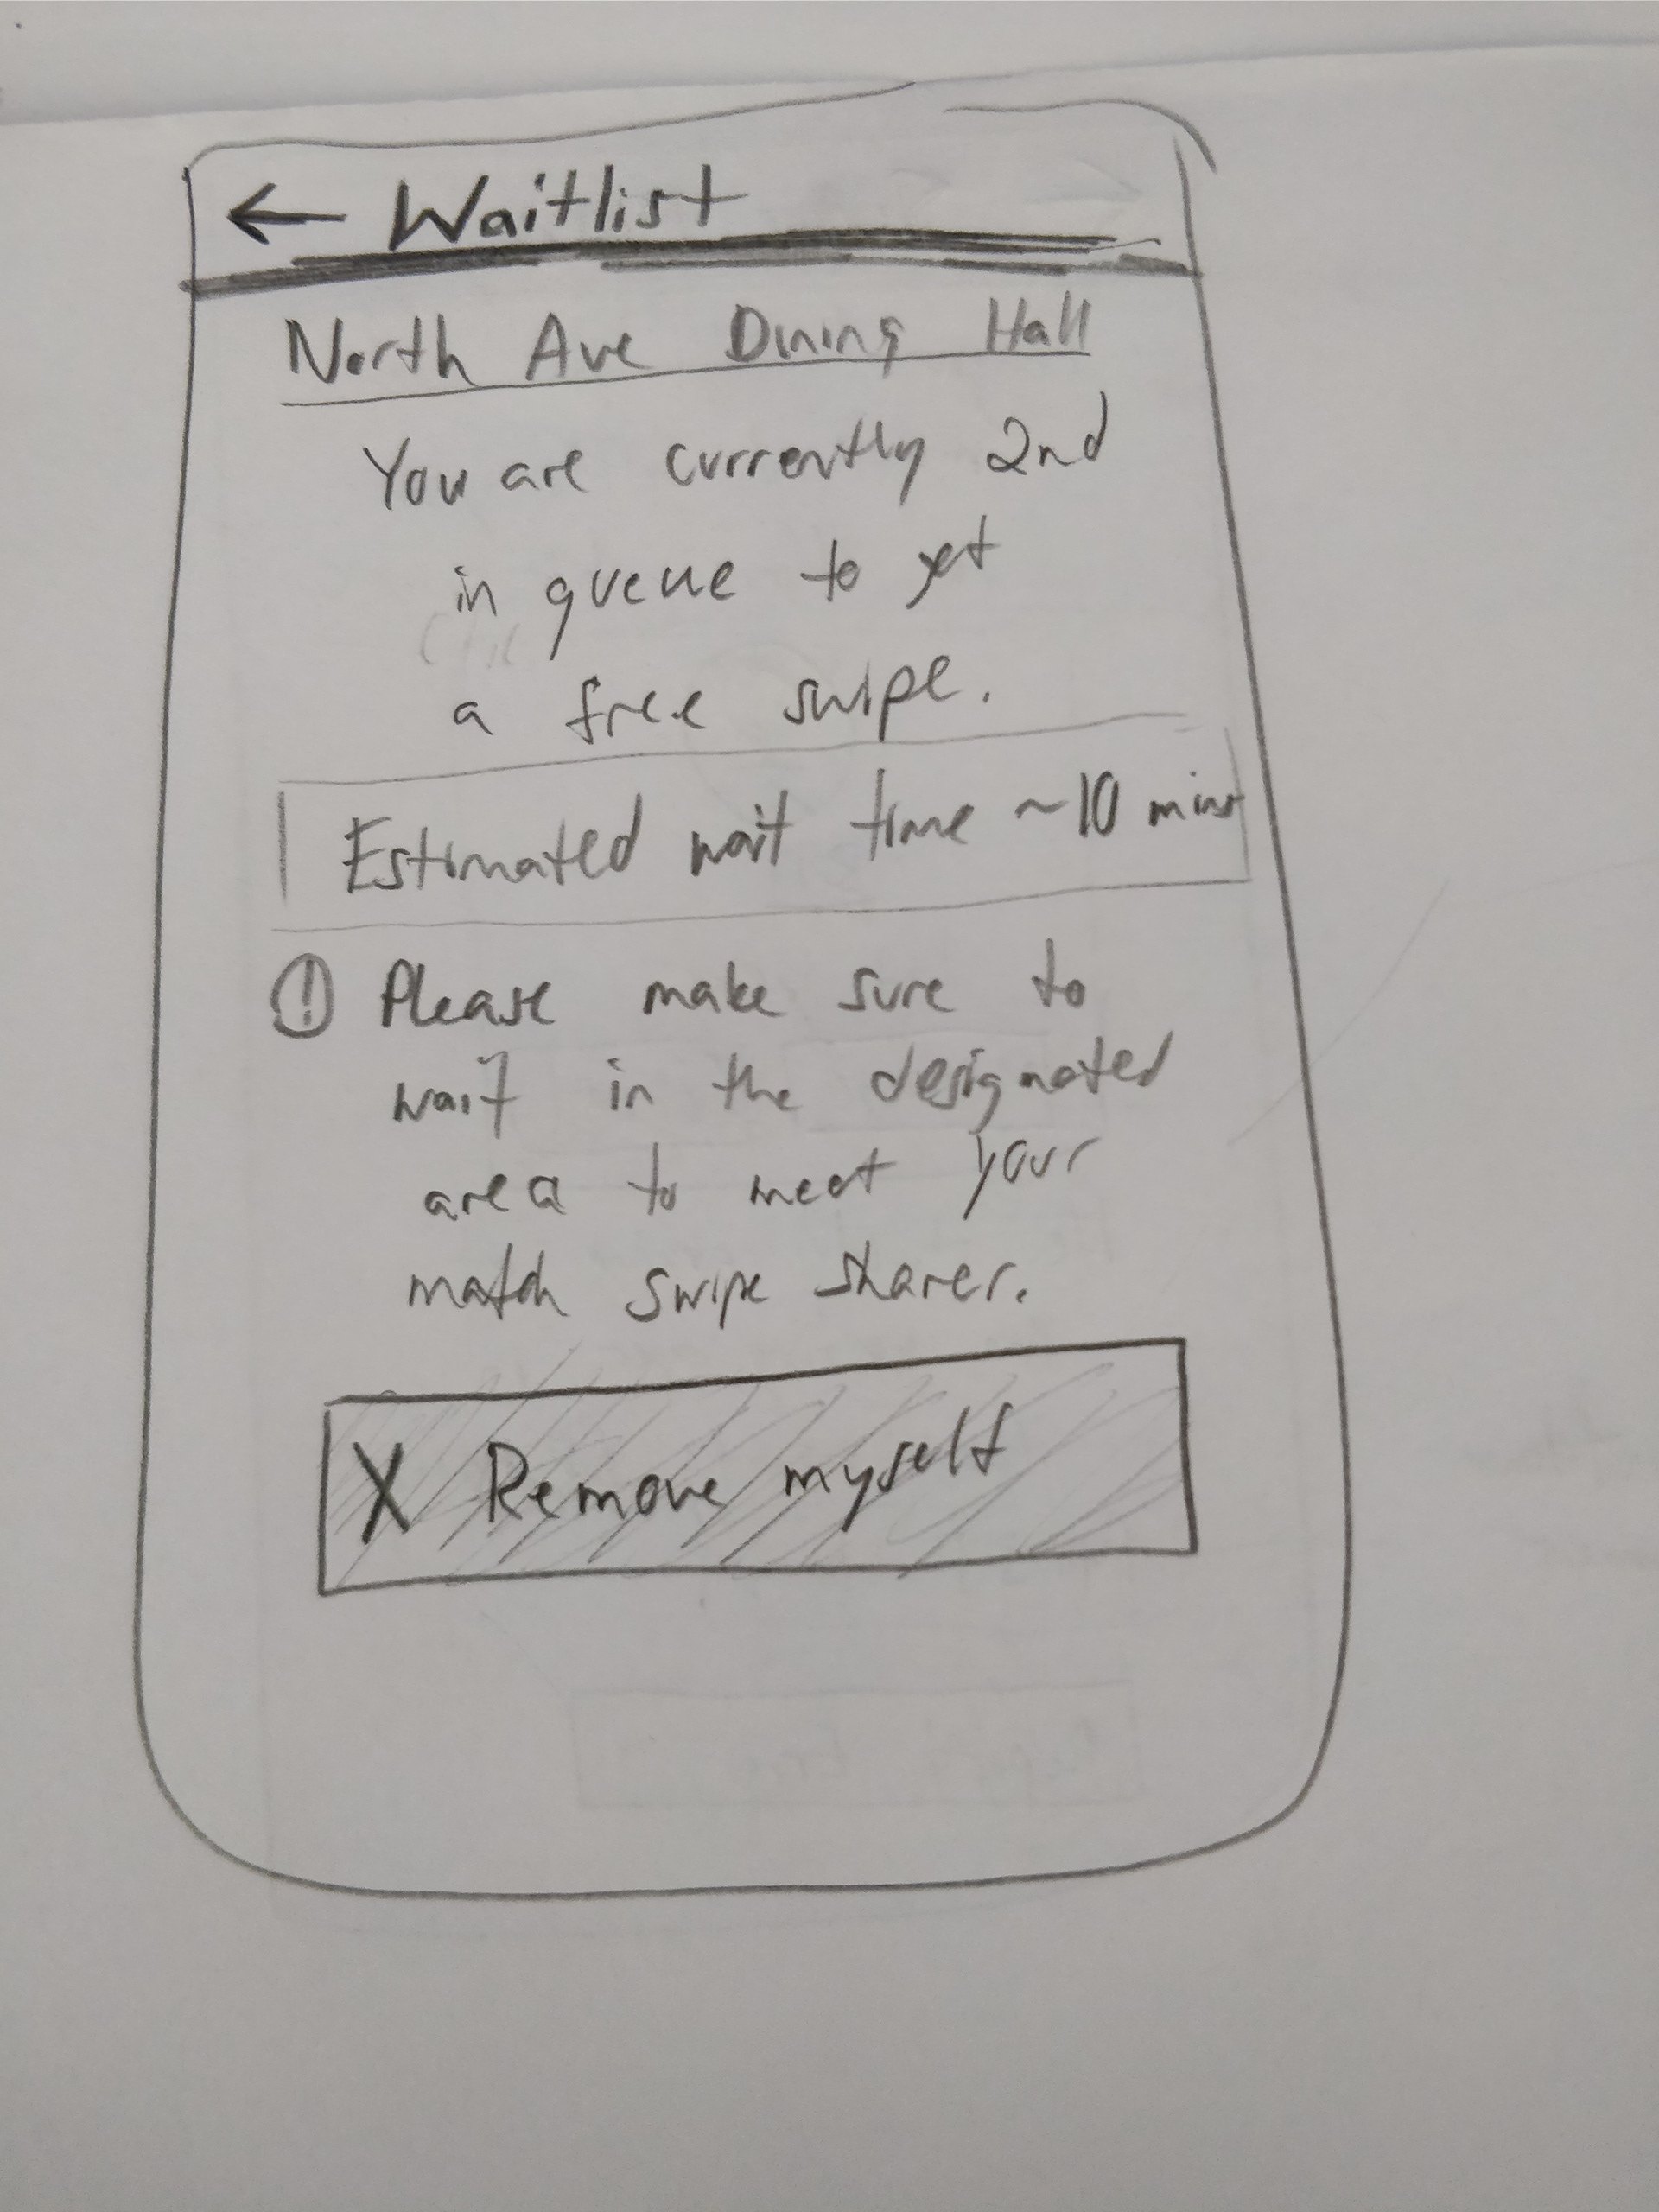 ← Waitlist
North Ave Dining Hall
You are currently 2nd
in queue to get
a free swipe.
Estimated wait time ~10 mins
! Please make sure to
wait in the designated
area to meet your
match swipe sharer.
X Remove myself